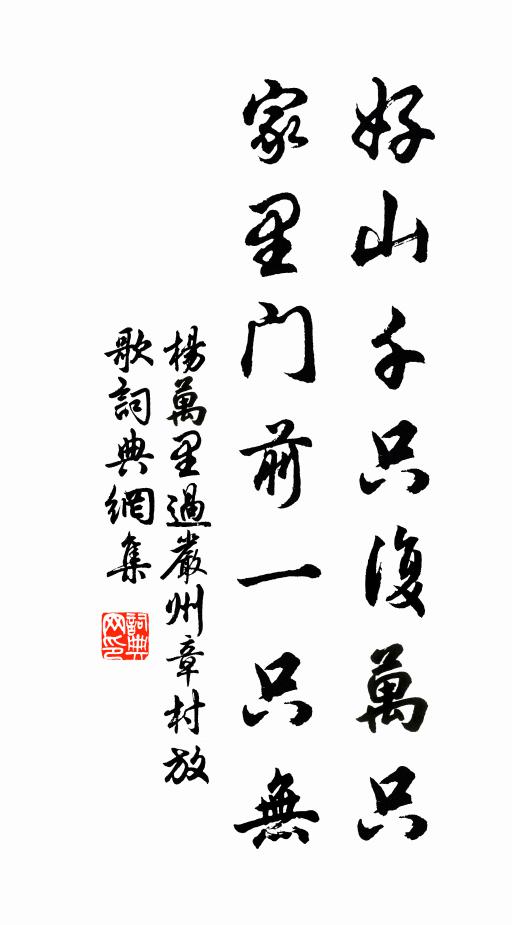 好山千只復萬只
家里门前一只無
楊萬里過嚴州章村放
歌詞典網集
詞典网印